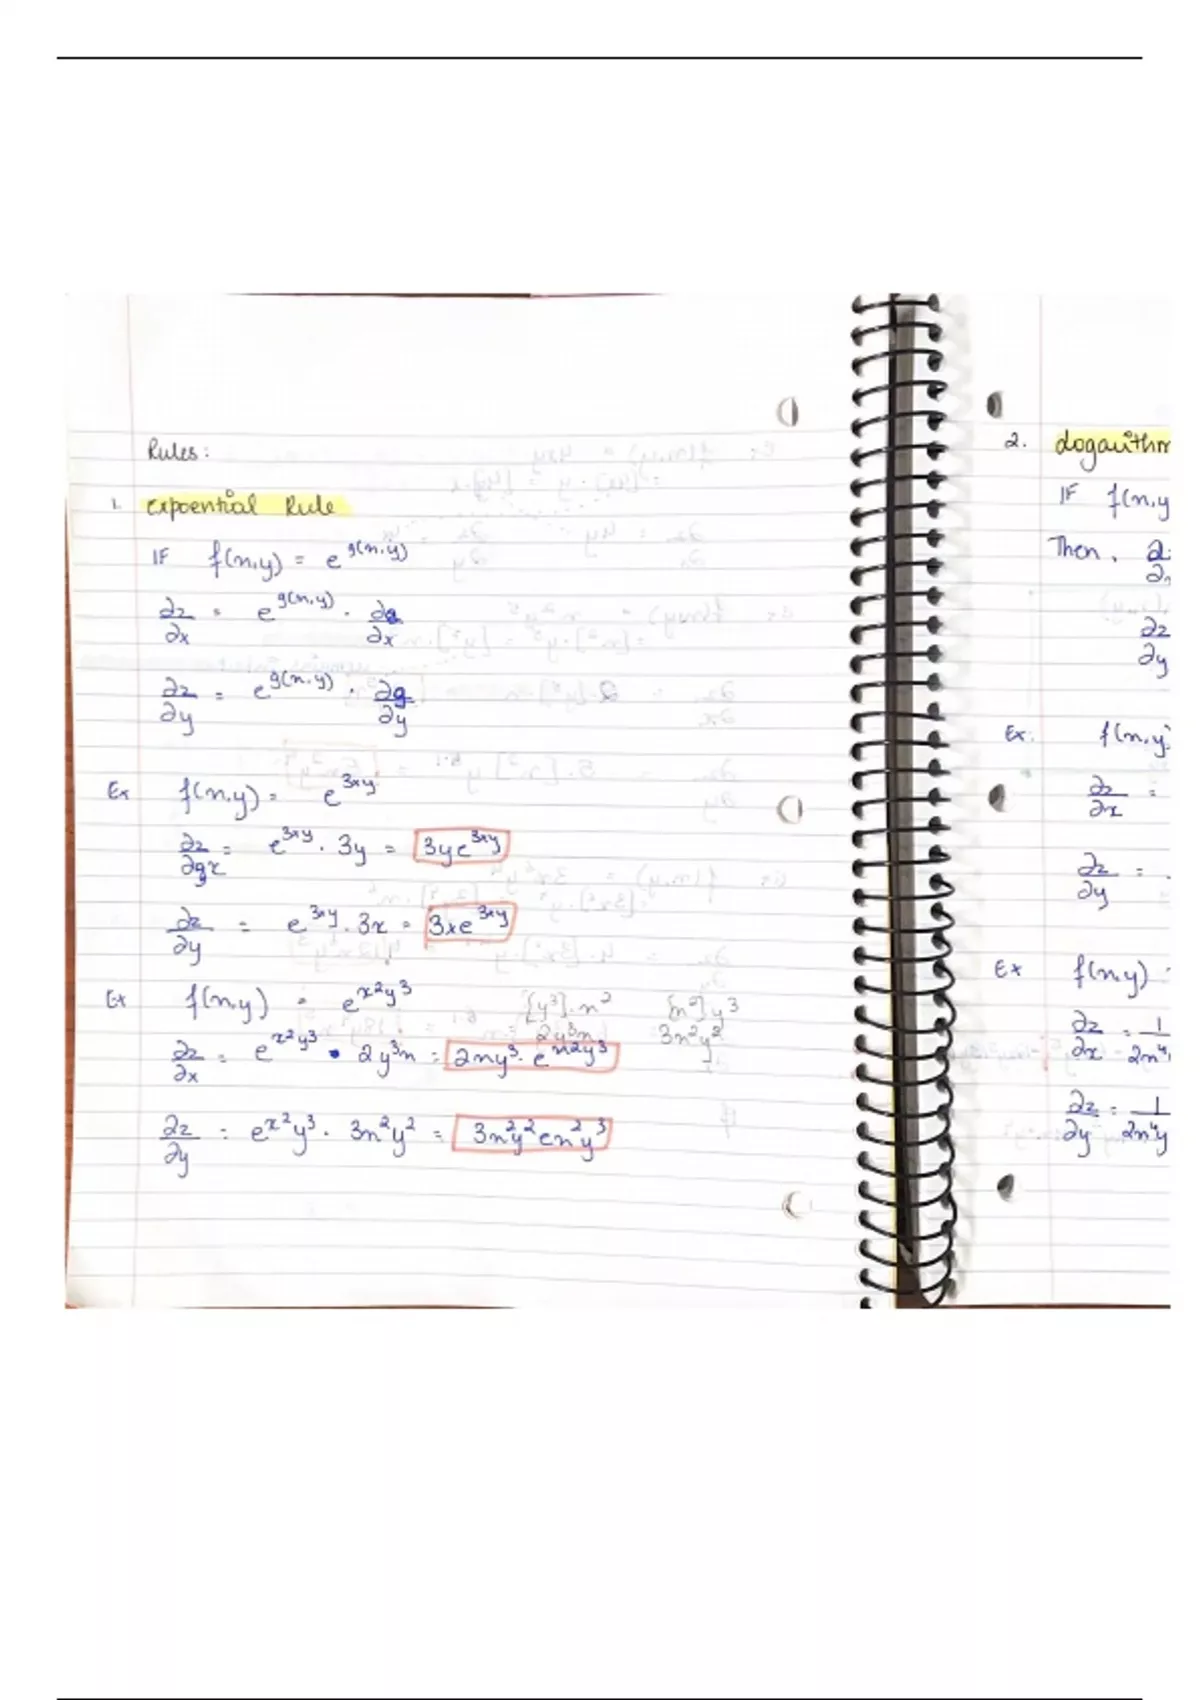 Rules:
1. expoential Rule
IF f(x,y) = e^g(x,y)
∂z/∂x = e^g(x,y) · ∂g/∂x
∂z/∂y = e^g(x,y) · ∂g/∂y
Ex f(x,y) = e^3xy
= e^3xy · 3y = 3ye^3xy
∂z/∂y = e^3xy · 3x = 3xe^3xy
Ex f(x,y) = e^x²y³
[y³]·x² [x²]y³
2y³x 3x²y²
∂z/∂x = e^x²y³ · 2y³x = 2xy³·e^x²y³
∂z/∂y = e^x²y³ · 3x²y² = 3x²y²ex²y³
2. Logarithm
IF f(x,y
Then, ∂z
∂x
∂z
∂y
Ex. f(x,y)
∂z/∂x =
∂z/∂y =
Ex f(x,y)
∂z/∂x = 1/2x⁴
∂z/∂y = 1/2x⁴y